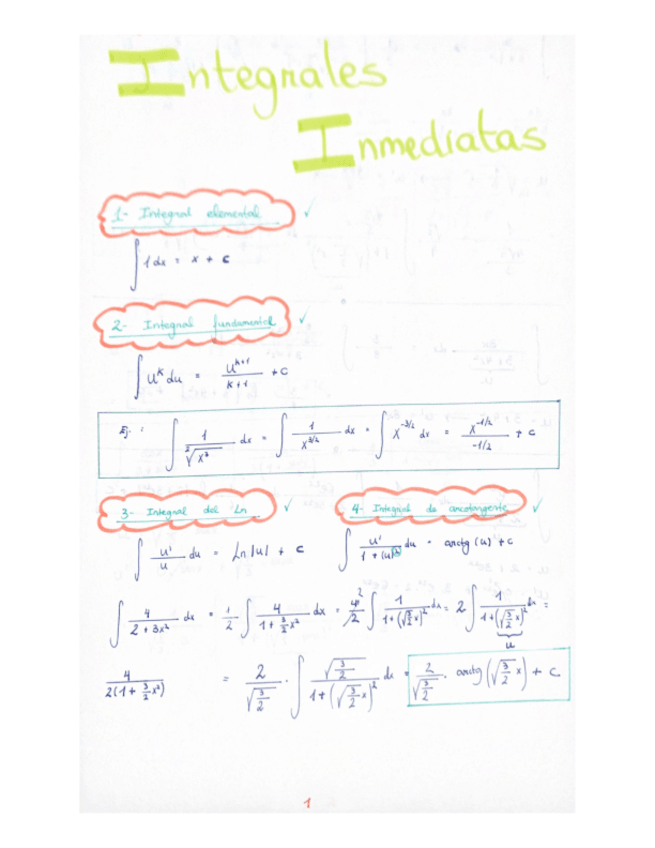 Integrales
Inmediatas
1- Integral elemental ✓
∫ 1 dx = x + c
2- Integral fundamental ✓
∫ u^k du = u^(k+1) / (k+1) + c
Ej. : ∫ 1/√(x³) dx = ∫ 1/x^(3/2) dx = ∫ x^(-3/2) dx = x^(-1/2) / (-1/2) + c
3- Integral del Ln ✓
∫ u'/u du = Ln |u| + c
4- Integral de arcotangente ✓
∫ u'/(1 + (u)²) du = arctg (u) + c
∫ 4/(2 + 3x²) dx = 1/2 ∫ 4/(1 + 3/2 x²) dx = 4/2 2 ∫ 1/(1 + (√(3/2) x)²) dx = 2 ∫ 1/(1 + (√(3/2) x)²) dx =
u
4/(2(1 + 3/2 x²)) = 2/√(3/2) · ∫ √(3/2)/(1 + (√(3/2) x)²) dx = 2/√(3/2) · arctg (√(3/2) x) + c
1